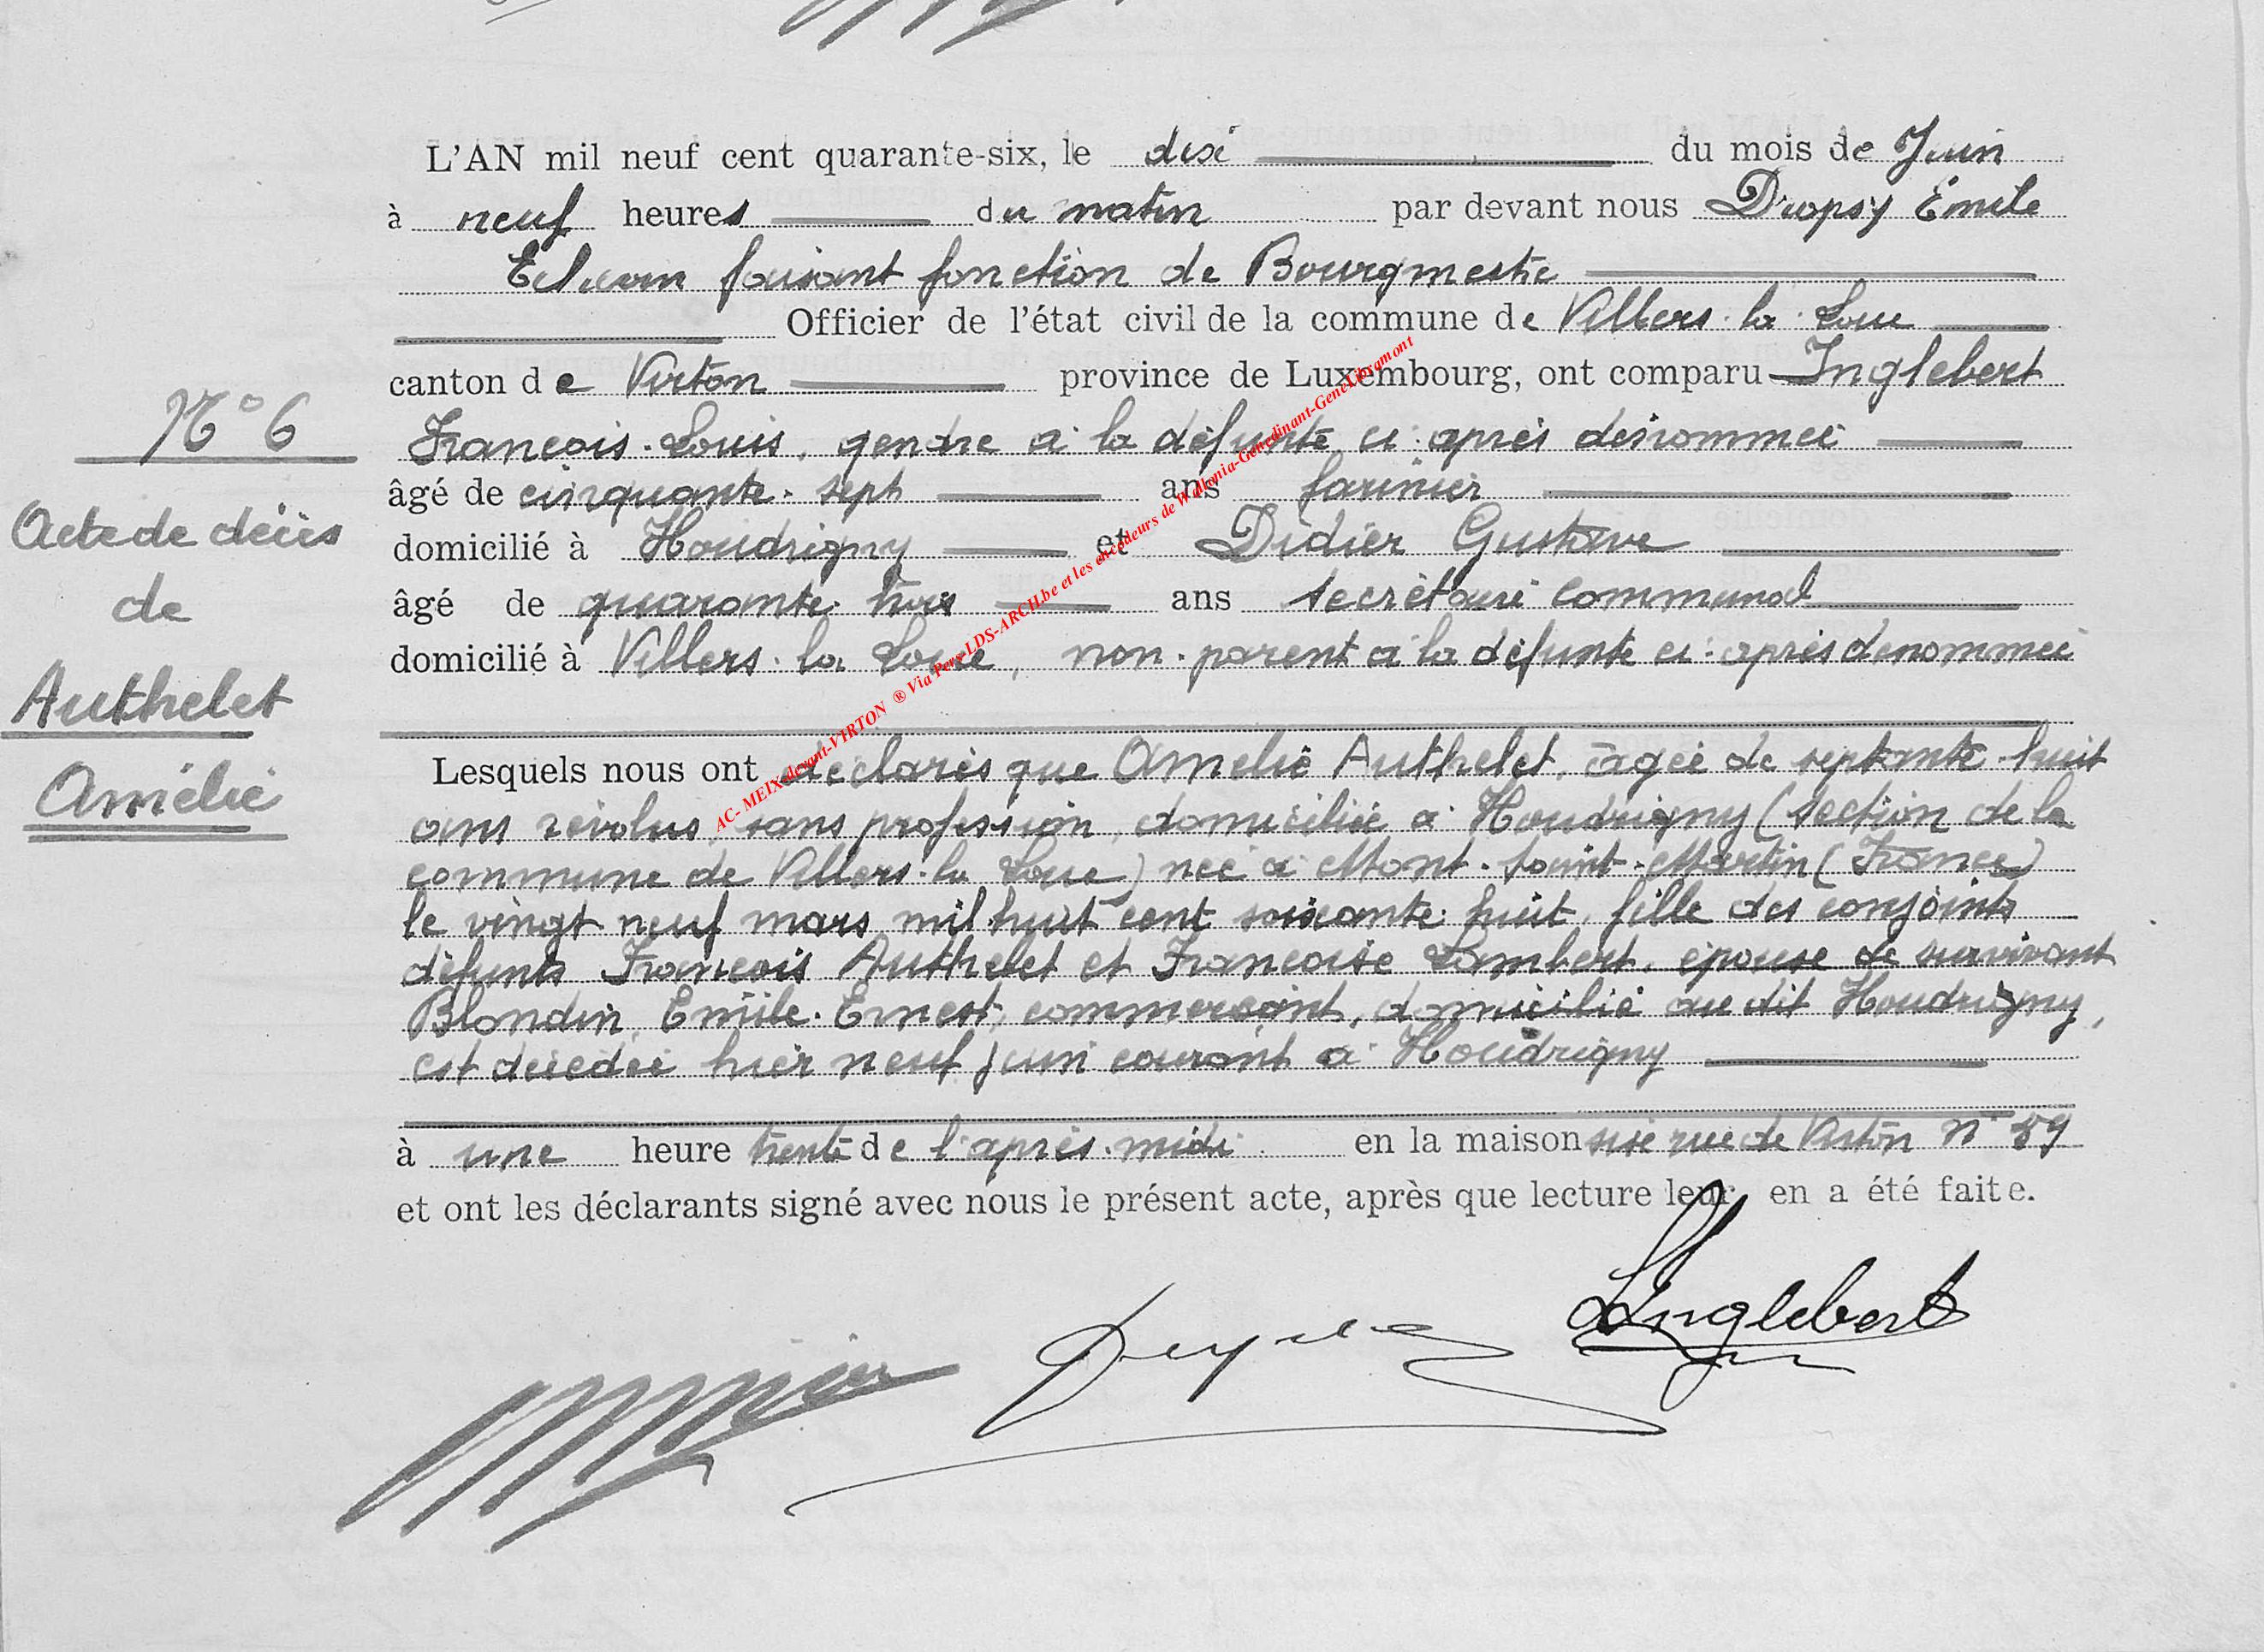 L'AN mil neuf cent quarante-six, le dix du mois de Juin
à neuf heures du matin par devant nous Dropsy Emile
Echevin faisant fonction de Bourgmestre
Officier de l'état civil de la commune de Villers-la-Loue
canton de Virton province de Luxembourg, ont comparu Inglebert
N° 6
François-Louis, gendre à la défunte ci-après dénommée
âgé de cinquante-sept ans farinier
Acte de décès
domicilié à Houdrigny et Didier Gustave
de
âgé de quarante-trois ans secrétaire communal
domicilié à Villers-la-Loue, non-parent à la défunte ci-après dénommée
Authelet
Amélie
Lesquels nous ont déclarés que Amélie Authelet, âgée de septante-huit
ans révolus, sans profession, domiciliée à Houdrigny (section de la
commune de Villers-la-Loue) née à Mont-Saint-Martin (France)
le vingt neuf mars mil huit cent soixante-huit, fille des conjoints
défunts François Authelet et Françoise Lambert, épouse de survivant
Blondin, Emile-Ernest, commerçant, domicilié au dit Houdrigny,
est décédée hier neuf juin courant à Houdrigny
à une heure trente de l'après-midi en la maison sise rue de Virton n° 59
et ont les déclarants signé avec nous le présent acte, après que lecture leur en a été faite.
Inglebert
AC- MEIX-devant-VIRTON ® Via Pers-LDS-ARCH.be et les encodeurs de Wallonia-Genedinant-GeneLibramont